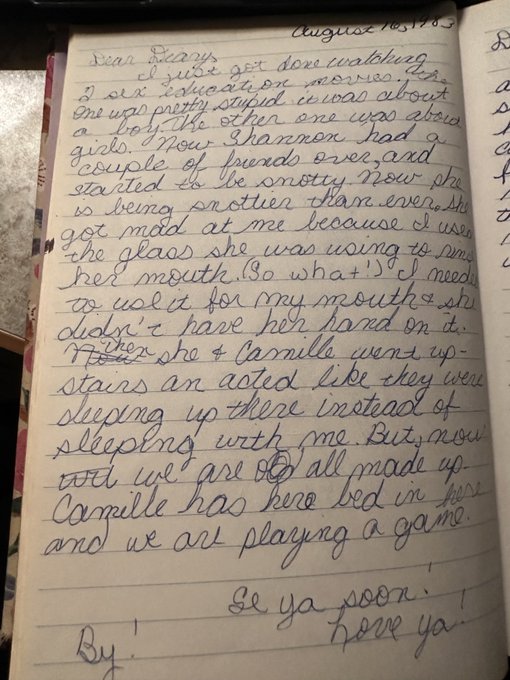 August 16, 1983
Dear Deary,
I just got done watching
2 sex education movies. The
one was pretty stupid it was about
a boy. the other one was about
girls. Now Shannon had a
couple of friends over, and
started to be snotty. Now she
is being snottier than ever. She
got mad at me because I used
the glass she was using to rins
her mouth. (So what!) I need
to use it for my mouth & she
didn't have her hand on it.
Now then she & Camille went up-
stairs an acted like they were
sleeping up there instead of
sleeping with me. But, now
we are all made up.
Camille has here bed in here
and we are playing a game.
Se ya soon!
Love ya!
By!